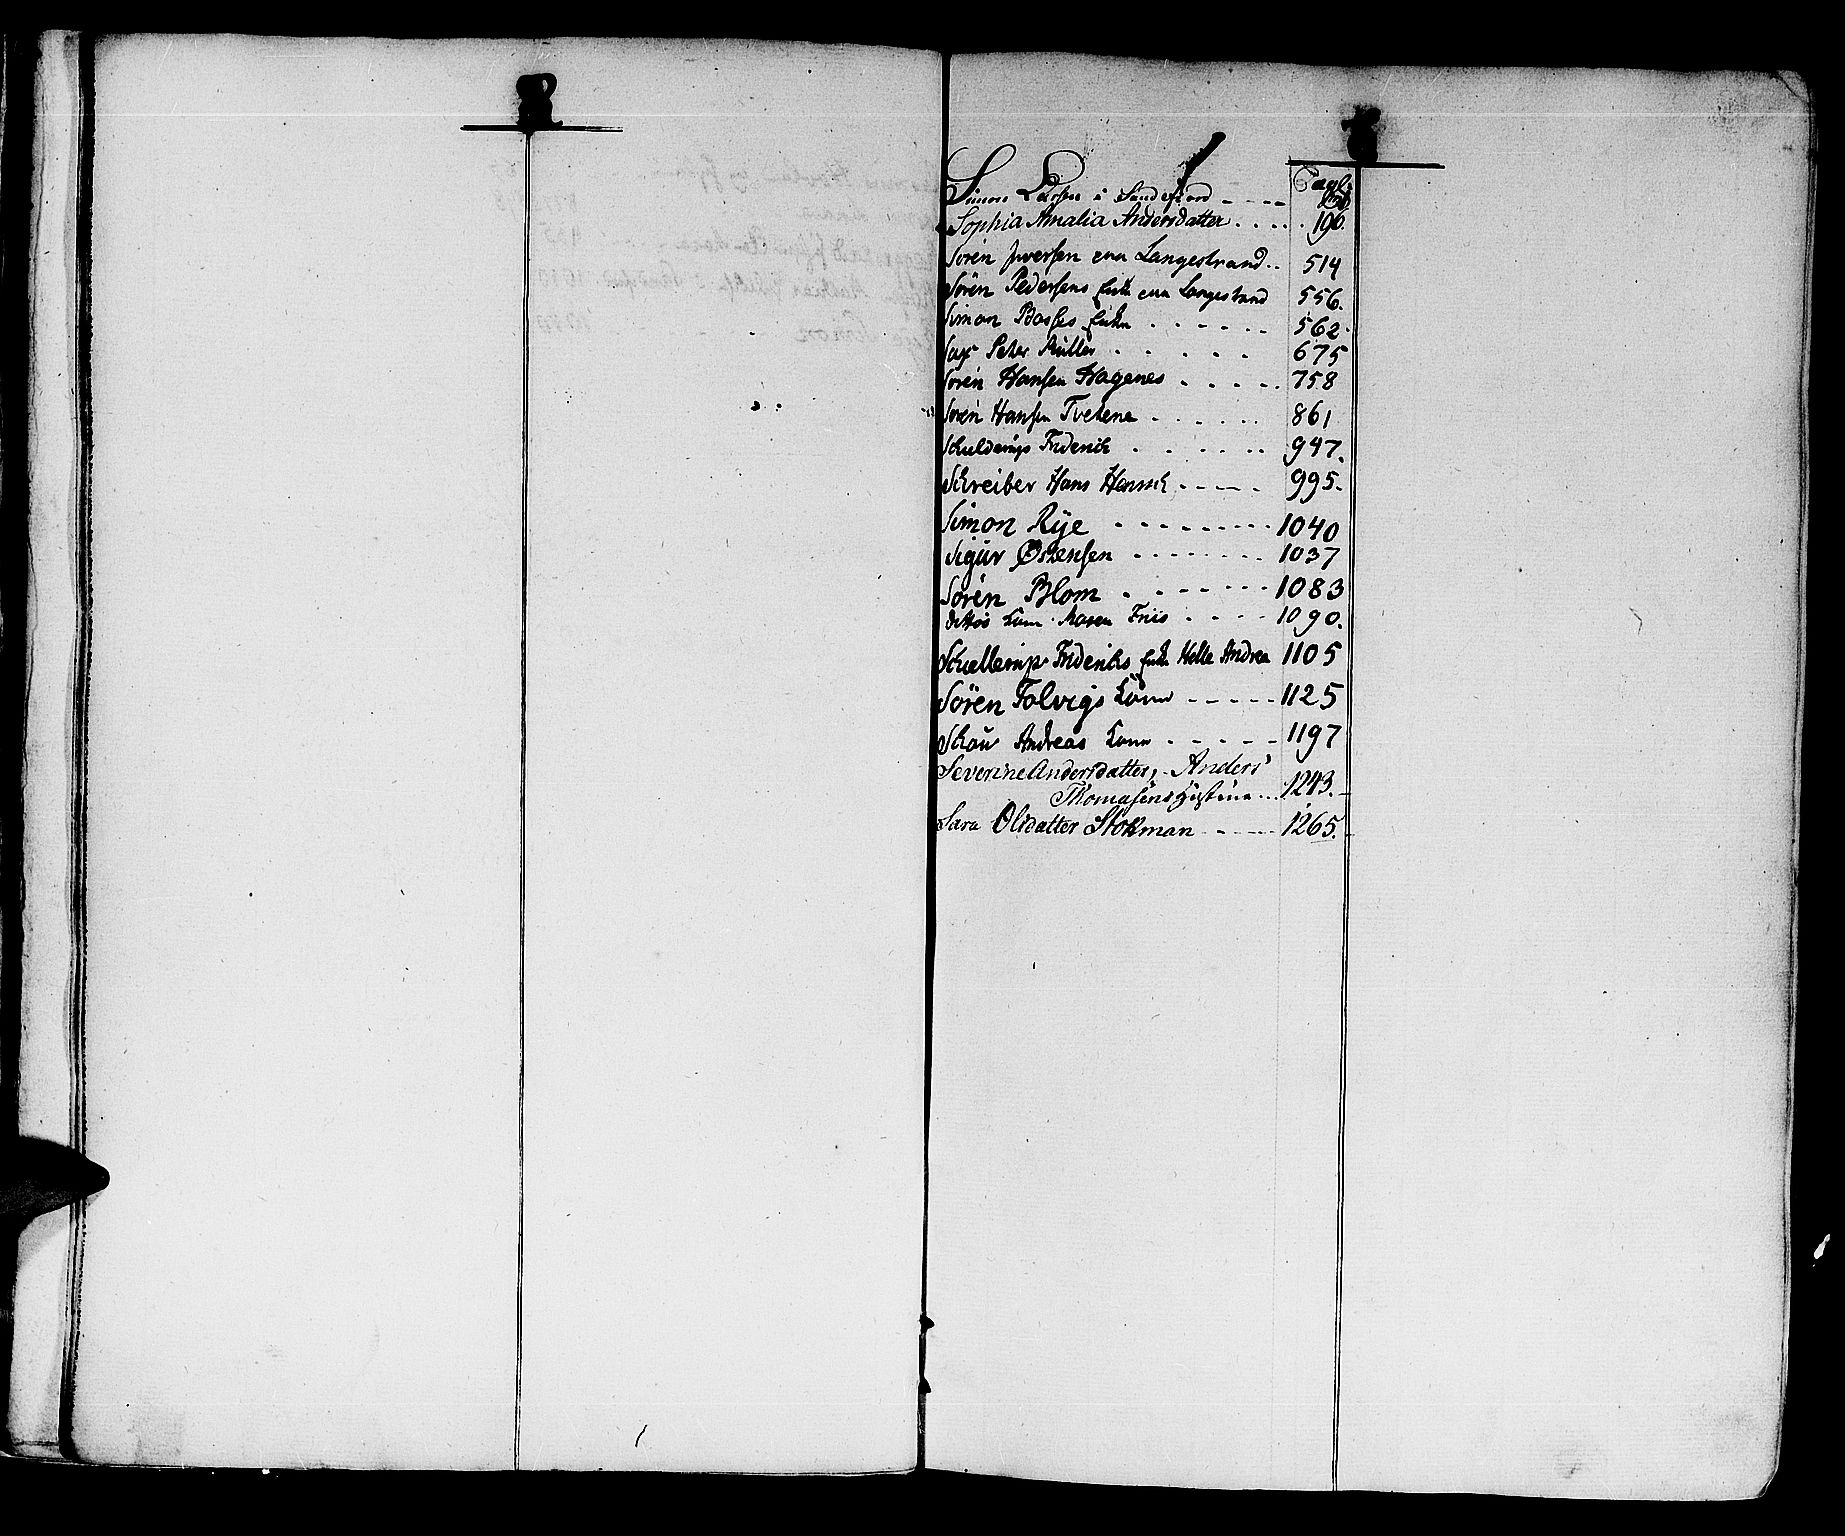 Pag:
Simon Larsen i Sandefiord - - - -
Sophia Amalia Andersdatter . . . . . 190.
Sören Jversen paa Langestrand . . 514
Sören Pedersens Enke paa Langestrand 556.
Simon Enke . . . . . . 562.
Peter Müller . . . . . . 675
Sören Hansen Hagenes . . . . . 758
Sören Hansen Tvetene . . . . . . 861
Friderich . . . . . . 947.
Schreiber Hans Henrich - - - - - 995.
Simon Rÿe - - - - - - - - - 1040
Sigur Østensen - - - - - - - - 1037
Sören Blom - - - - - - - 1083
dittos Kone Maren Friis - - - - - 1090.
Friderichs Enke Helle Andrea 1105
Sören Folvigs Kone - - - - - 1125
Schau Andreas Kone - - - - - 1197
Severine Andersdatter, Anders
Thomasens Hustrue . . . 1243.
Sara Olsdatter Stokman - - - - - 1265.